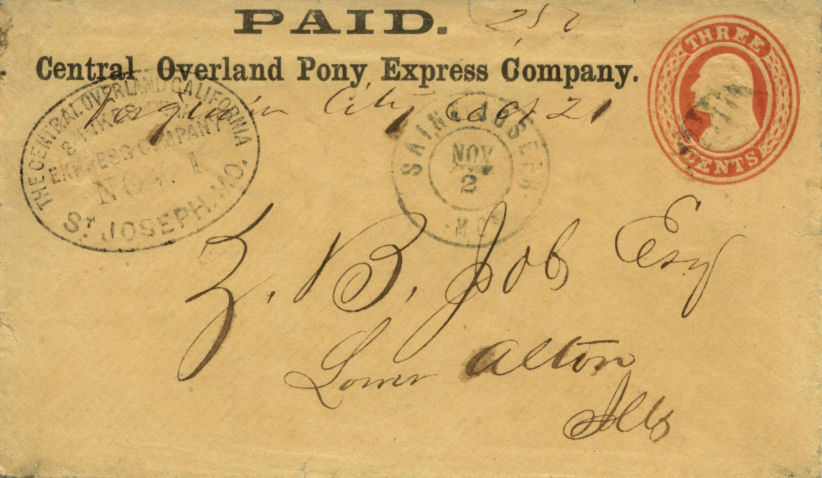 PAID. 250
Central Overland Pony Express Company.
City Oct 21
THREE CENTS
THE CENTRAL OVERLAND CALIFORNIA
& PIKES PEAK
EXPRESS COMPANY
NOV. 1
ST JOSEPH, MO.
SAINT JOSEPH
NOV
2
MO.
Z. B. Job Esq
Lower Alton
Ills